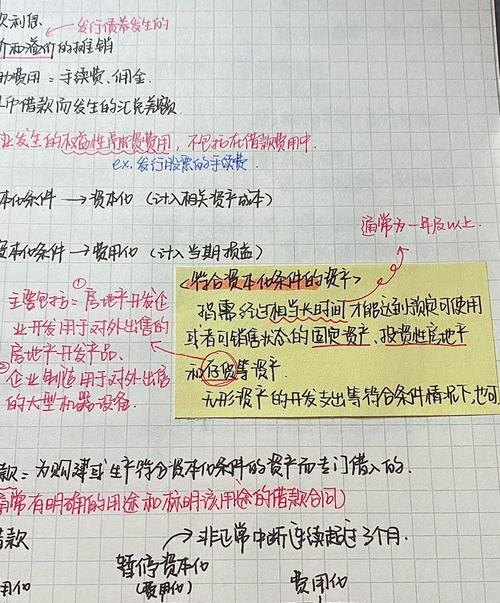 利息
发行债券发生的
价和溢价的摊销
助费用 = 手续费、佣金.
币借款而发生的汇兑差额
业发生的权益性融资费用, 不包括在借款费用中.
ex. 发行股票的手续费.
本化条件 → 资本化 (计入相关资产成本)
通常为一年及以上.
资本化条件 → 费用化 (计入当期损益)
<符合资本化条件的资产>
指需经过相当长时间才能达到预定可使用
或者可销售状态的固定资产、投资性房地产
和存货等资产.
无形资产的开发支出等符合条件情况下,也可
主要包括: ① 房地产开发企
业开发用于对外出售的
房地产开发产品、
② 企业制造用于对外出售
的大型机器设备.
款: 为购建或生产符合资本化条件的资产而专门借入的.
通常有明确的用途和标明该用途的借款合同)
借款
→ 非正常中断连续超过3个月.
暂停资本化
(费用化)
用化
费用化